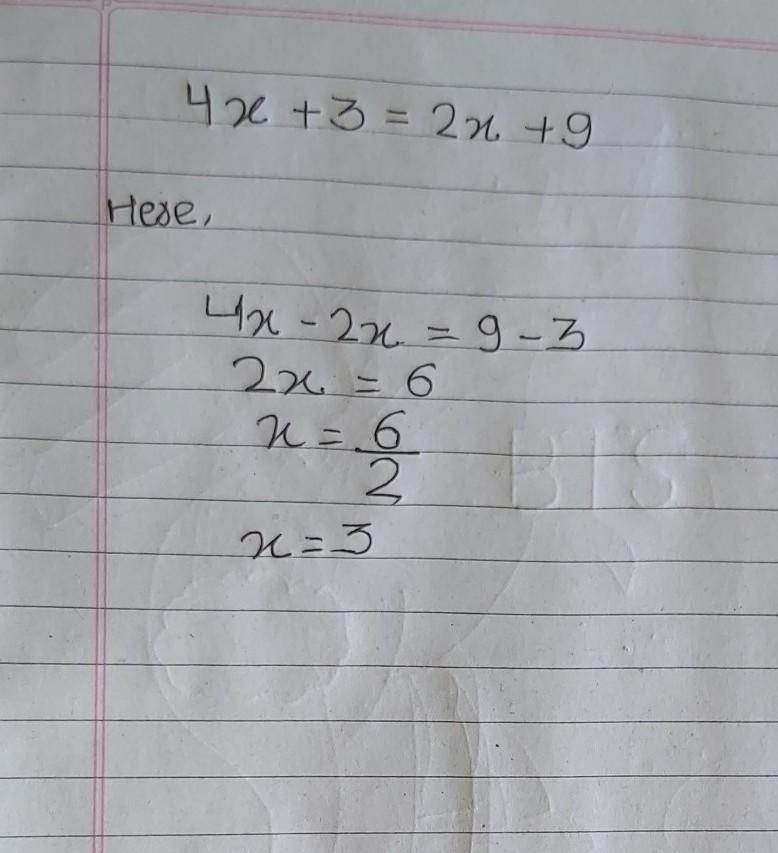 4x + 3 = 2x + 9
Here,
4x - 2x = 9 - 3
2x = 6
x = 6/2
x = 3
BTS